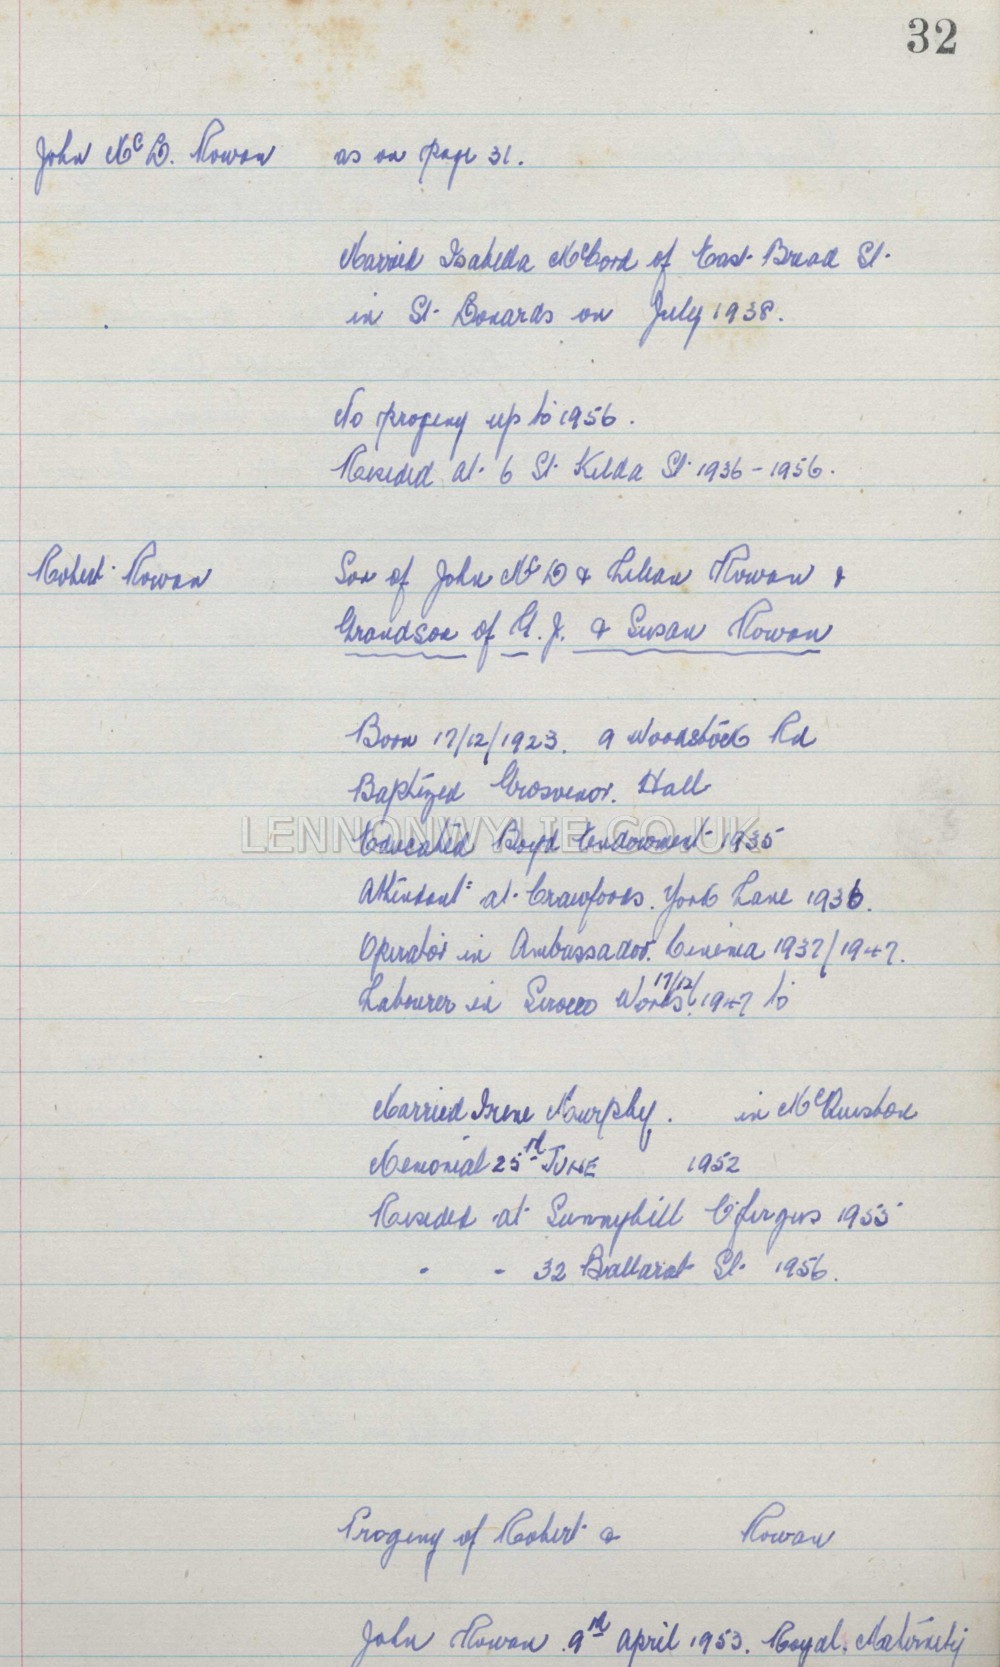 32
John McD. Rowan as on page 31.
Married Isabella McCord of East Bread St.
in St. Donards on July 1938.
No progeny up to 1956.
Resided at 6 St. Kilda St. 1936 - 1956.
Robert Rowan Son of John McD & Lilian Rowan &
Grandson of W. J. & Susan Rowan
Born 17/12/1923. 9 Woodstock Rd
Baptized Grosvenor. Hall
LENNONWYLIE.CO.UK
Educated Boyd Endowment 1935
Attendant at Crawfords. York Lane 1936.
Operator in Ambassador. Cinema 1937/1947.
Labourer in Sirocco Works. 17/12/1947 to
Married Irene Murphy. in McQuiston
Memorial 25rd JUNE 1952
Resided at Sunnyhill C'fergus 1955
" " 32 Ballarat St. 1956.
Progeny of Robert & Rowan
John Rowan 9th April 1953. Royal. Maternity